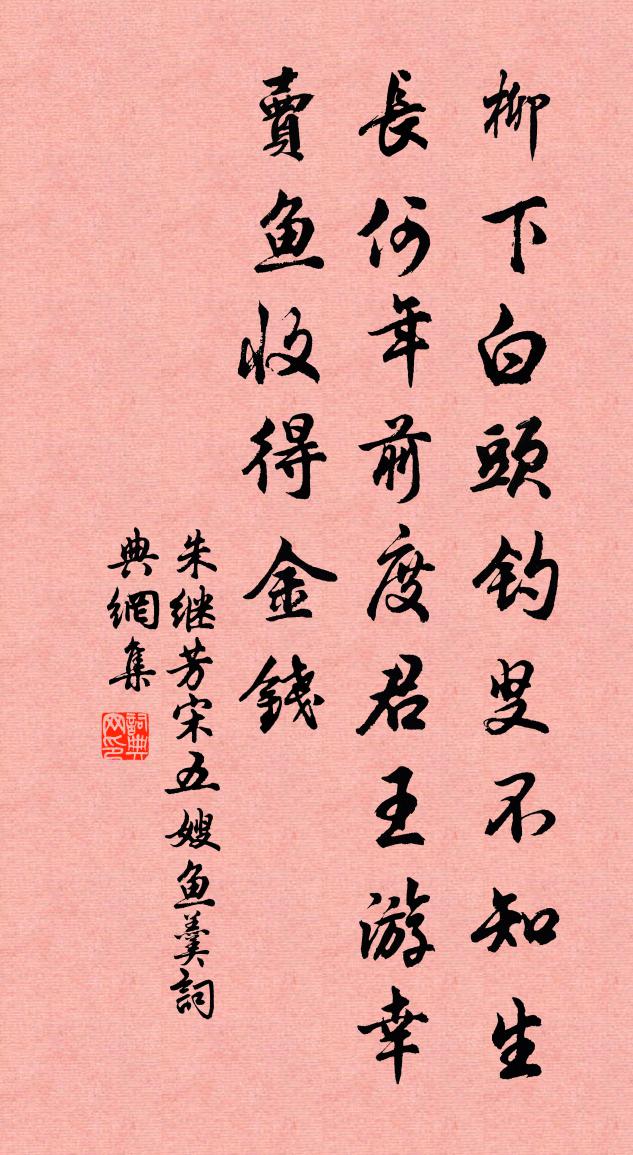 柳下白頭釣叟不知生
長何年前度君王游幸
賣鱼收得金錢
朱继芳宋五嫂鱼羹詞
典網集
詞典网印